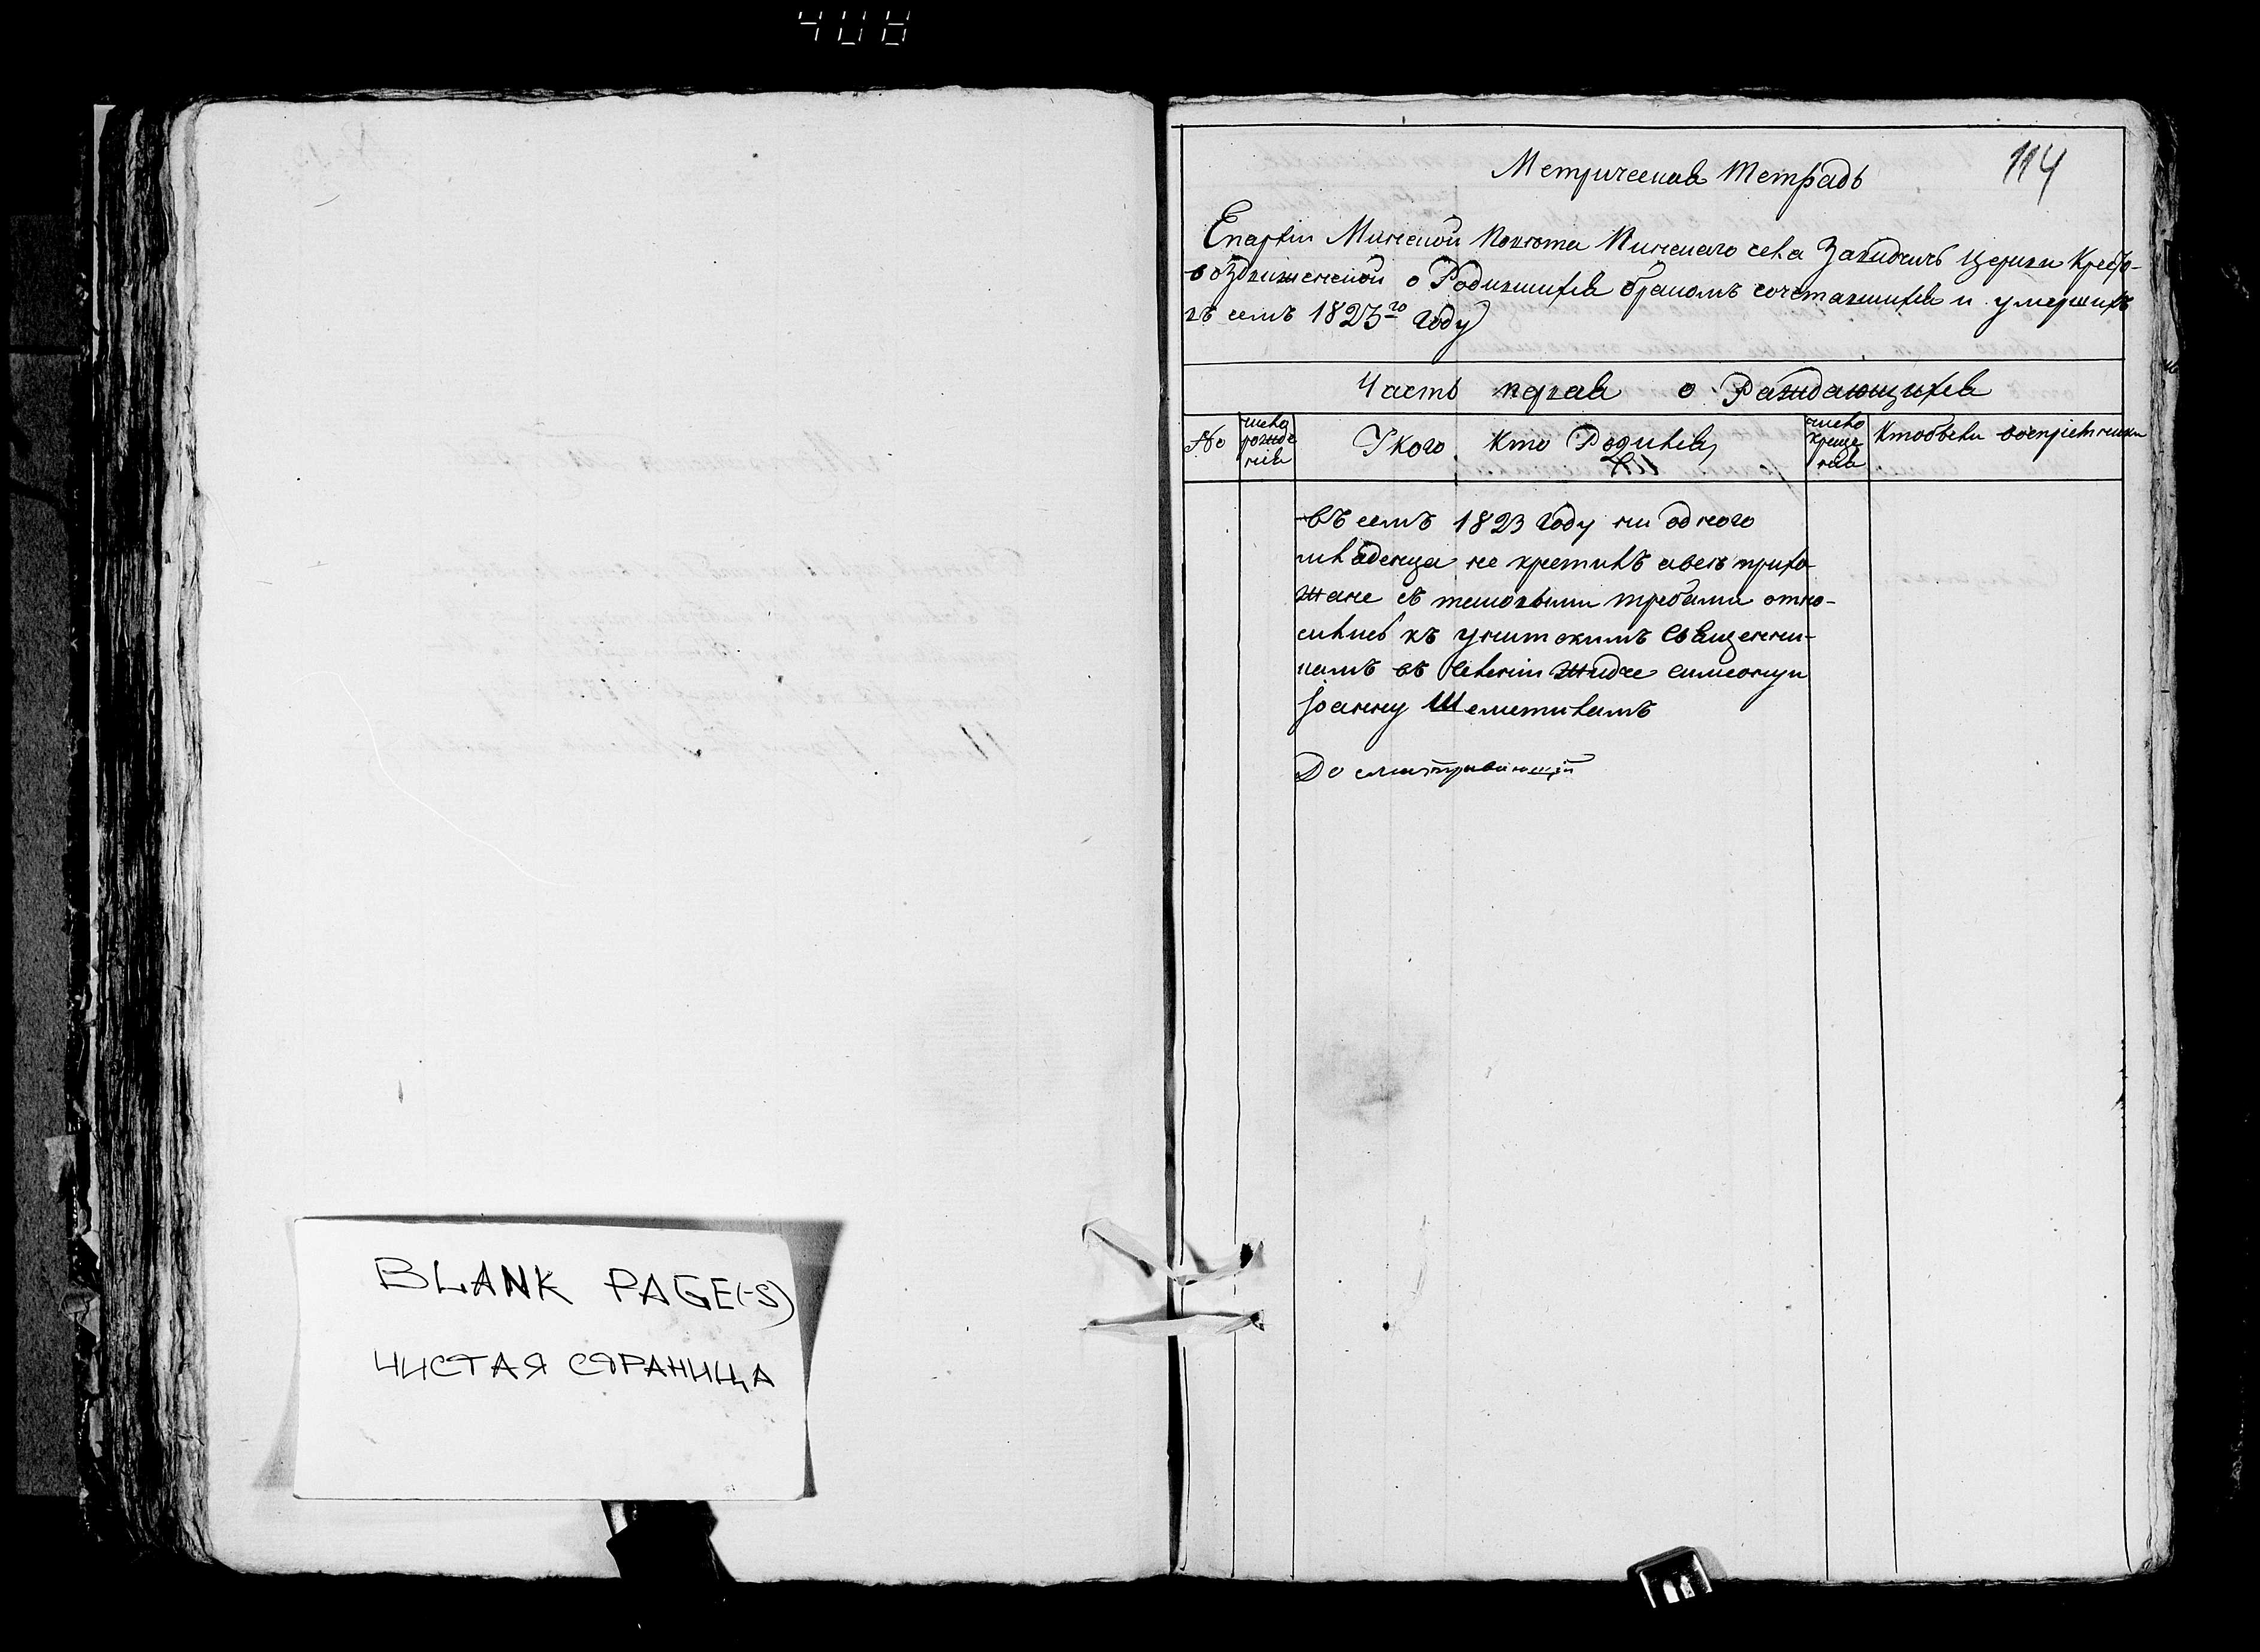 408
114
Метрическая тетрадь
Епархіи Минской Повѣта Пинскаго села Завидчичъ церкви Кресто-
воздвиженской о Родившихся бракомъ сочетавшихся и умершихъ
въ семъ 1823го году
Часть первая о Раждающихся
No число рожде нія У кого кто Родился число креще нія Кто были воспріемники
въ семъ 1823 году ни одного
младенца не крестилъ а всѣ прихо
жане съ таковыми требами отно-
сились къ унитскимъ Священни-
камъ въ селеніи Жидче Симеону и
Іоанну Шеметиламъ
BLANK PAGE(-S)
ЧИСТАЯ СТРАНИЦА